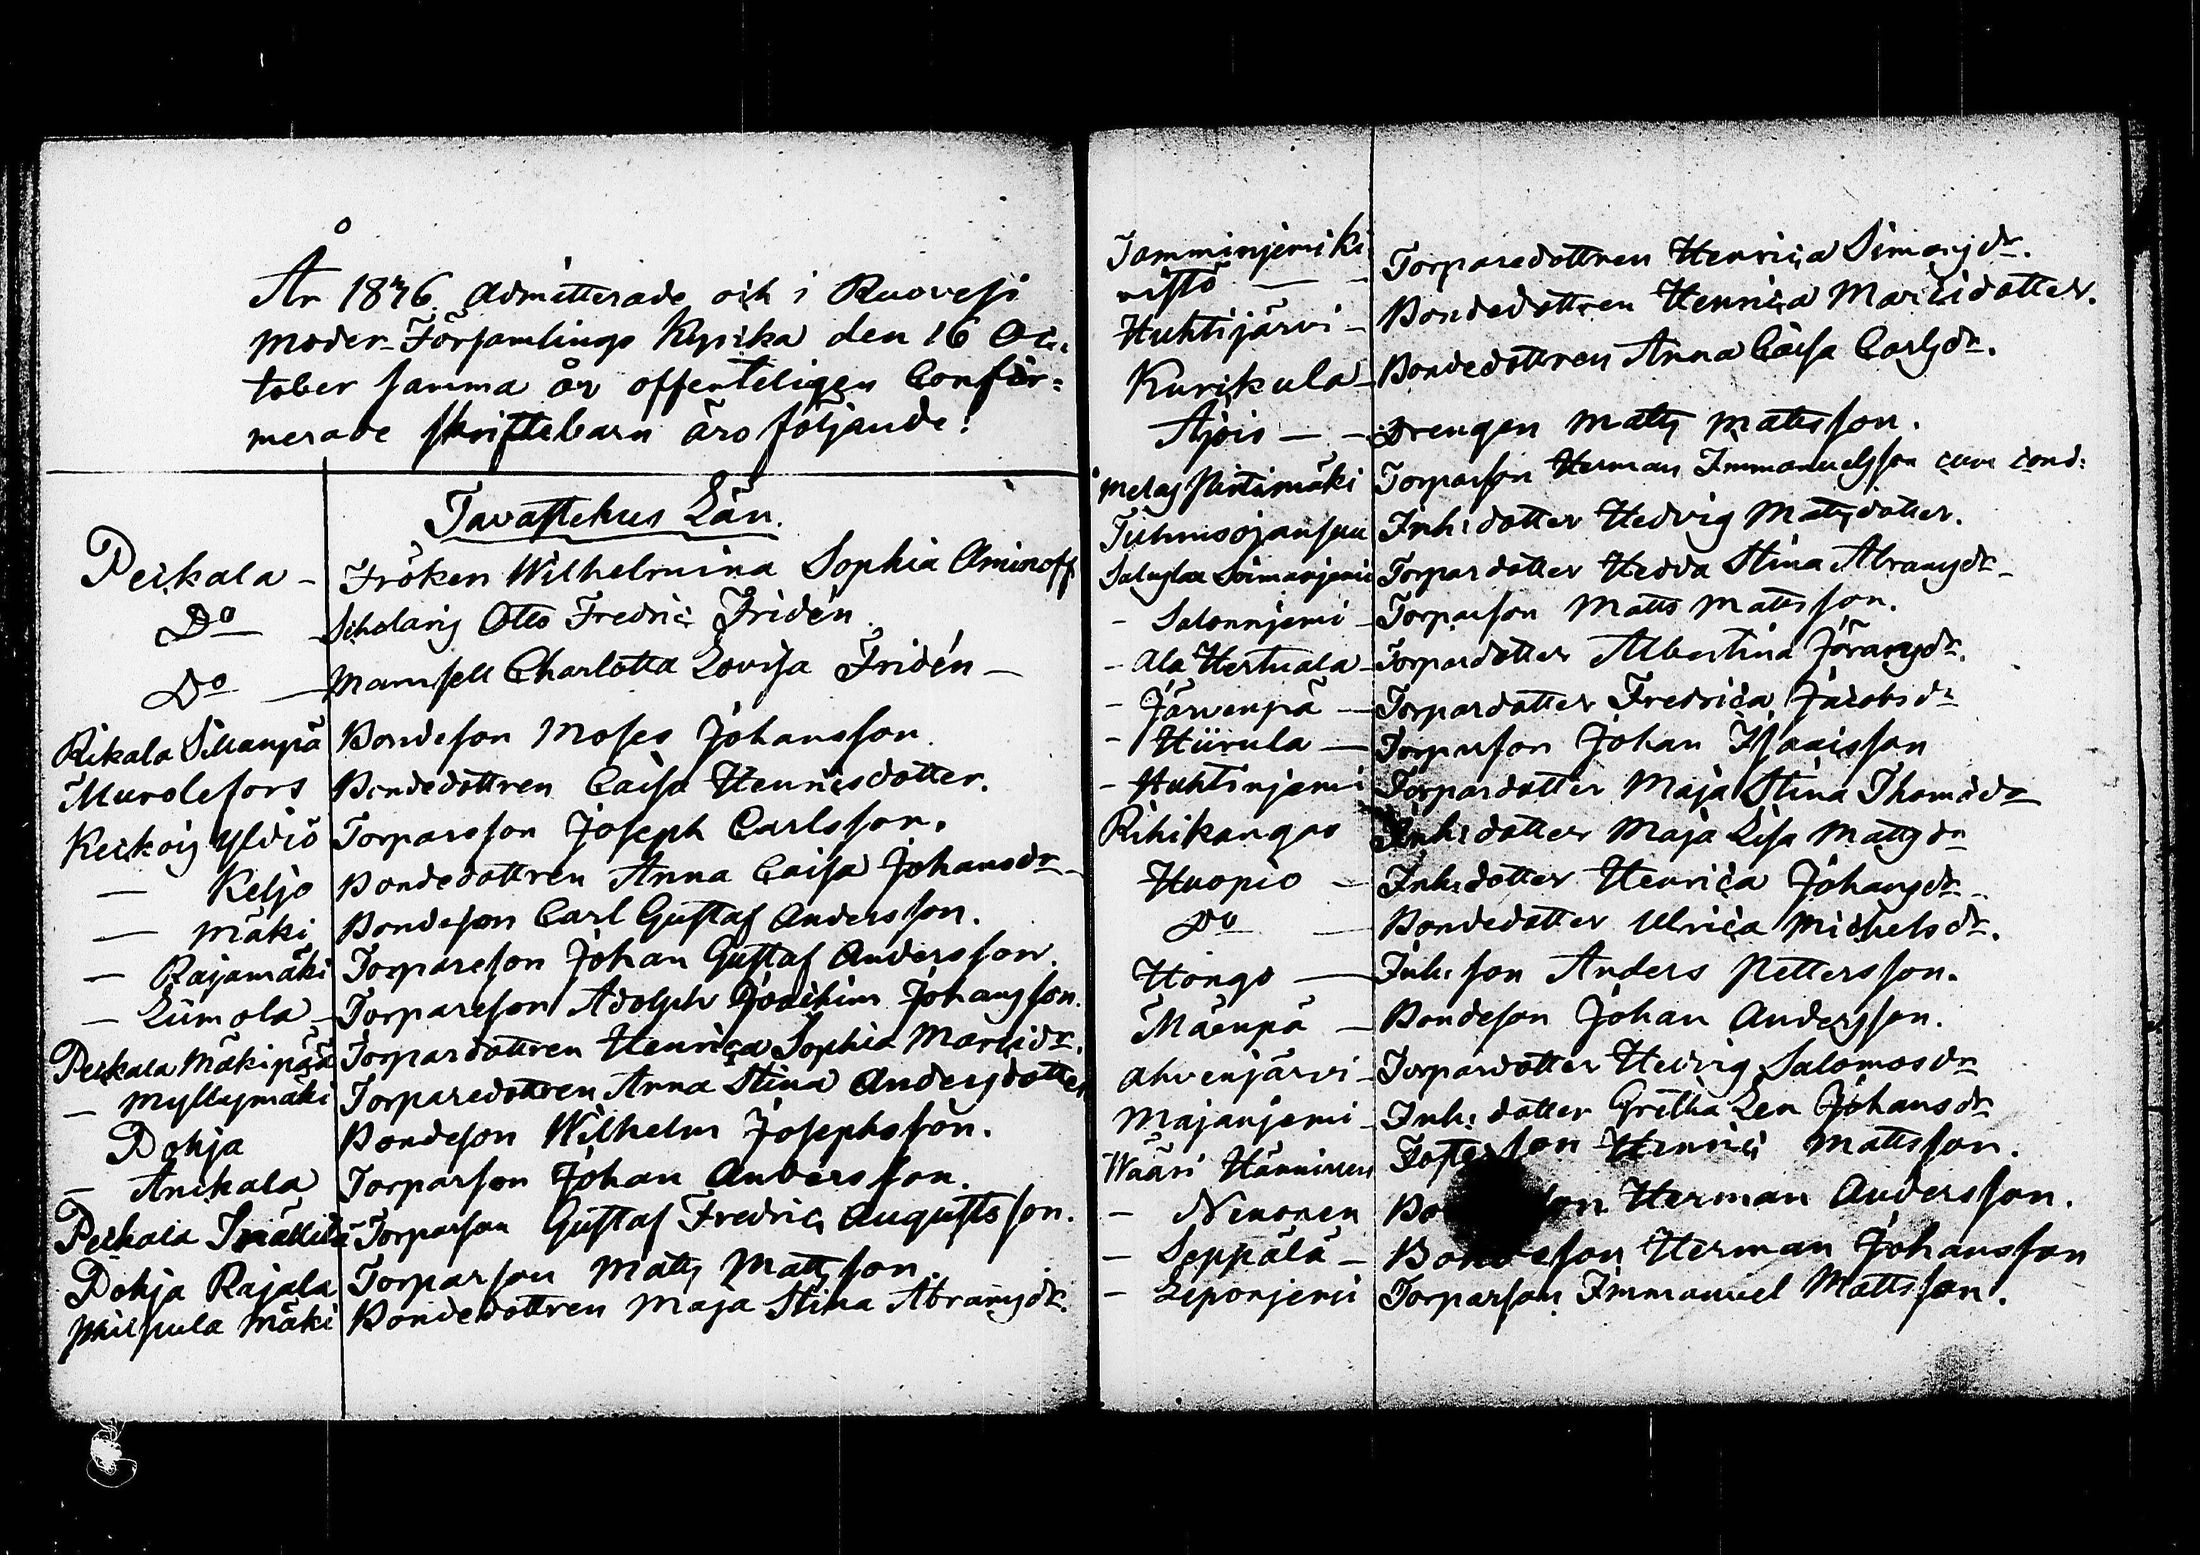 År 1846 admitterade och i Ruovesi
Moder-Församlings Kyrcka den 16 Oc-
tober samma år offenteligen Confir=
merade skriftebarn äro följande:
Tavastehus Län.
Pekkala - Fröken Wilhelmina Sophia Aminoff
Do - Scholaris Otto Fredric Fridén
Do - Mamsell Charlotta Lovisa Fridén -
Rikala Sillanpä Bondeson Moses Johansson.
Murolefors Bondedottren Caisa Henricsdotter.
Keckois Yldiö Torpareson Joseph Carlsson.
- Keljo Bondedottren Anna Caisa Johansdr -
- Mäki Bondeson Carl Gustaf Andersson.
- Rajamäki Torpareson Johan Gustaf Andersson.
- Liimola - Torpareson Adolph Joachim Johansson.
Pekkala Mäkipää Torpardottren Henrica Sophia Martidr.
- Myllymäki Torparedottren Anna Stina Andersdotter
Pohja Bondeson Wilhelm Josephsson.
- Anikala Torparson Johan Andersson.
Pekkala Torparson Gustaf Fredric Augustsson.
Pohja Rajala Torparson Matts Mattsson.
Philpula Mäki Bondedottren Maja Stina Abramsdr.
Tamminjemi Ki
vistö - - Torparedottren Henrica Simonsdr.
Huhtijärvi - Bondedottren Henrica Martidotter.
Kurikula - Bondedottren Anna Caisa Carlsdr.
Ajois - - Drengen Matts Mattsson.
Melas Pirtimäki Torparson Herman Immanuelsson cum cond:
Tuhmsojansuu Inh: dotter Hedvig Mattsdotter.
Soimanjemi Torpardotter Hedda Stina Abramsdr -
- Salonnjemi - Torparson Matts Mattsson.
- Ala Hertuala - Torpardotter Albertina Göransdr.
- Järvenpä - Torpardotter Fredrica Jacobsdr
- Hiirula - Torparson Johan Isaacsson
- Huhtinjemi Torpardotter Maja Stina Thomædr
Rihikangas Inh: dotter Maja Lisa Mattsdr
Huopio - Inh: dotter Henrica Johansdr -
Do - Bondedotter Ulrica Michelsdr.
Hongo - Inh: son Anders Pettersson.
Mäenpä - Bondeson Johan Andersson.
Ahvenjärvi - Torpardotter Hedvig Salomosdr
Majanjemi - Inh: dotter Gretha Len Johansdr
Wääri Hänninen Fosterson Henric Mattsson.
- Nenonen Herman Andersson.
- Seppälä - Bondeson Herman Johansson
- Leponjemi Torparson Immanuel Mattsson.